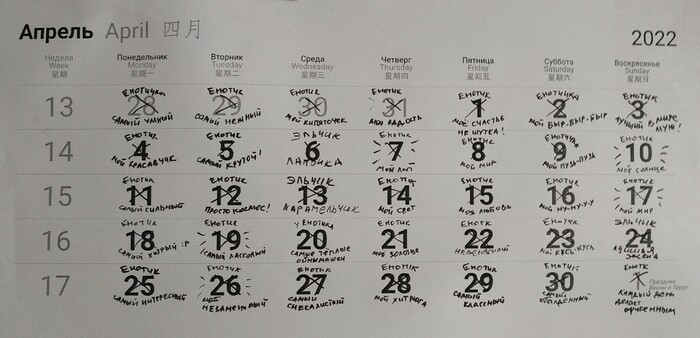 Апрель April 四月 2022
Неделя Понедельник Вторник Среда Четверг Пятница Суббота Воскресенье
Week Monday Tuesday Wednesday Thursday Friday Saturday Sunday
星期 星期一 星期二 星期三 星期四 星期五 星期六 星期日
ЕНОТИЧКА ЕНОТИК ЕНОТИК ЕНОТИК ЕНОТИК ЕНОТИЧКА ЕНОТИК
13 28 29 30 31 1 2 3
САМЫЙ УМНЫЙ САМЫЙ НЕЖНЫЙ МОЙ КИПЯТОЧЕК МОЯ РАДОСТЬ МОЁ СЧАСТЬЕ МОЙ ФЫР-ФЫР-ФЫР ЛУЧШИЙ В МИРЕ
НЕ ШУТКА! МУЖ!
ЕНОТИК ЕНОТИК ЭЛЬЧИК ЕНОТИК ЕНОТИК ЕНОТИК ЕНОТИК
14 4 5 6 7 8 9 10
МОЙ КРАСАВЧИК САМЫЙ КРУТОЙ! ЛАПОЧКА МОЙ МИР МОЙ ПУЗЬ-ПУЗЬ МОЕ СОЛНЦЕ
ЕНОТИК ЕНОТИК ЭЛЬЧИК ЕНОТИК ЕНОТИК ЕНОТИК ЕНОТИК
15 11 12 13 14 15 16 17
САМЫЙ СИЛЬНЫЙ ПРОСТО КОСМОС! КАРАМЕЛЬЧИК МОЙ СВЕТ МОЯ ЛЮБОВЬ МОЙ МИР
ЕНОТИК ЕНОТИК У ЕНОТИКА ЕНОТИК ЕНОТИК ЕНОТИК ЭЛЬЧИК
16 18 19 20 21 22 23 24
САМЫЙ ХИТРЫЙ :P САМЫЙ ЛАСКОВЫЙ САМЫЕ ТЕПЛЫЕ МОЕ ЗОЛОТЦЕ МОЙ КУСЬ-КУСЬ
ОБНИМАШКИ
ЕНОТИК ЕНОТИК ЕНОТИК ЕНОТИК ЕНОТИК ЕНОТИК
17 25 26 27 28 29 30 1
Праздник
Весны и Труда
САМЫЙ ИНТЕРЕСНЫЙ МОЙ САМЫЙ МОЙ ХИТРЮГА САМЫЙ САМЫЙ КАЖДЫЙ ДЕНЬ
НЕЗАМЕНИМЫЙ СМЕКАЛИСТЫЙ КЛАССНЫЙ ОБАЛДЕННЫЙ ДЕЛАЕТ